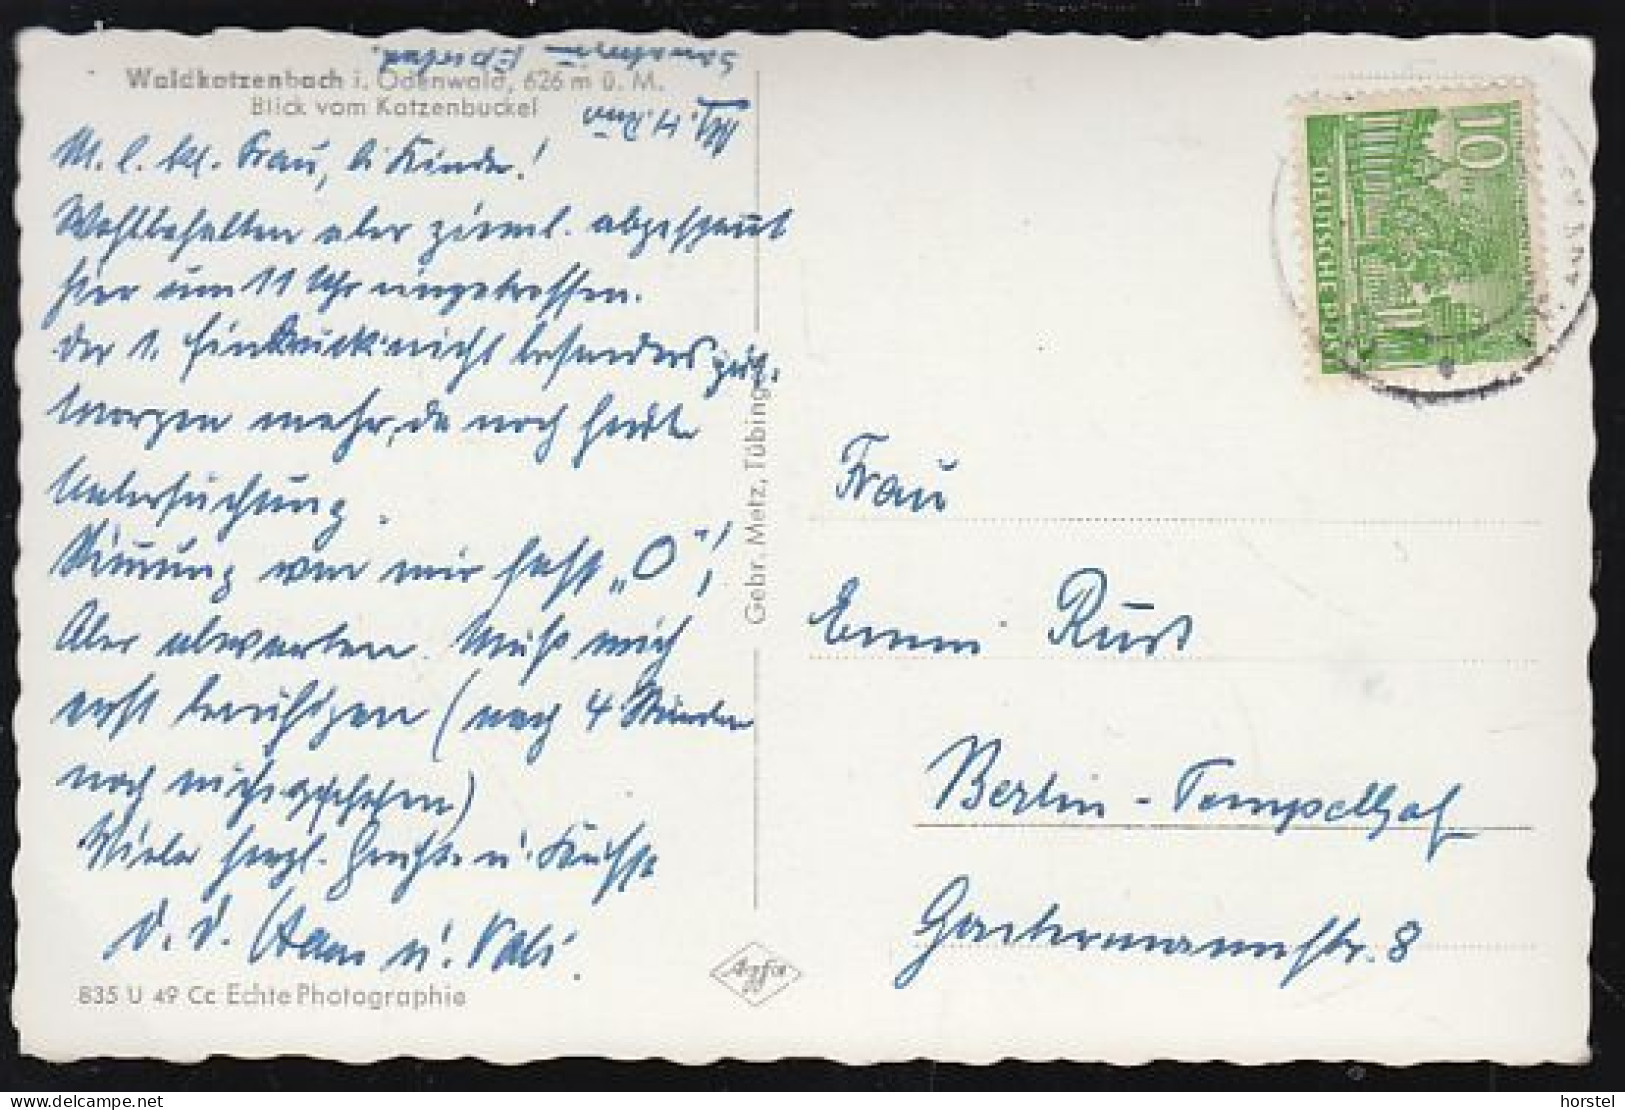 Waldkatzenbach i. Odenwald, 626 m ü. M.
Blick vom Katzenbuckel
M. l. kl. Frau, l. Kinder!
Wohlbehalten aber zieml. abgespannt
hier um 11 Uhr eingetroffen.
Der 1. Eindruck nicht besonders gut.
Morgen mehr, da noch heute
Untersuchung.
Stimmung von mir fast „0“!
Aber abwarten. Muß mich
erst beruhigen (nach 4 Stunden
noch nicht geschehen)
Viele herzl. Grüße u. Küsse
D. D. u. Vati.
835 U 49 Cc Echte Photographie
Gebr. Metz, Tübingen
Agfa
10
DEUTSCHE POST
Frau
Emmi Rust
Berlin-Tempelhof
Gontermannstr. 8
horstel